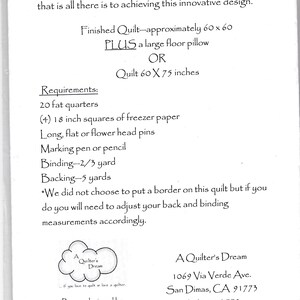 that is all there is to achieving this innovative design.
Finished Quilt—approximately 60 x 60
PLUS a large floor pillow
OR
Quilt 60 X 75 inches
Requirements:
20 fat quarters
(4) 18 inch squares of freezer paper
Long, flat or flower head pins
Marking pen or pencil
Binding—2/3 yard
Backing—5 yards
*We did not choose to put a border on this quilt but if you
do you will need to adjust your back and binding
measurements accordingly.
A
Quilter's
Dream
A Quilter's Dream
1069 Via Verde Ave.
San Dimas, CA 91773